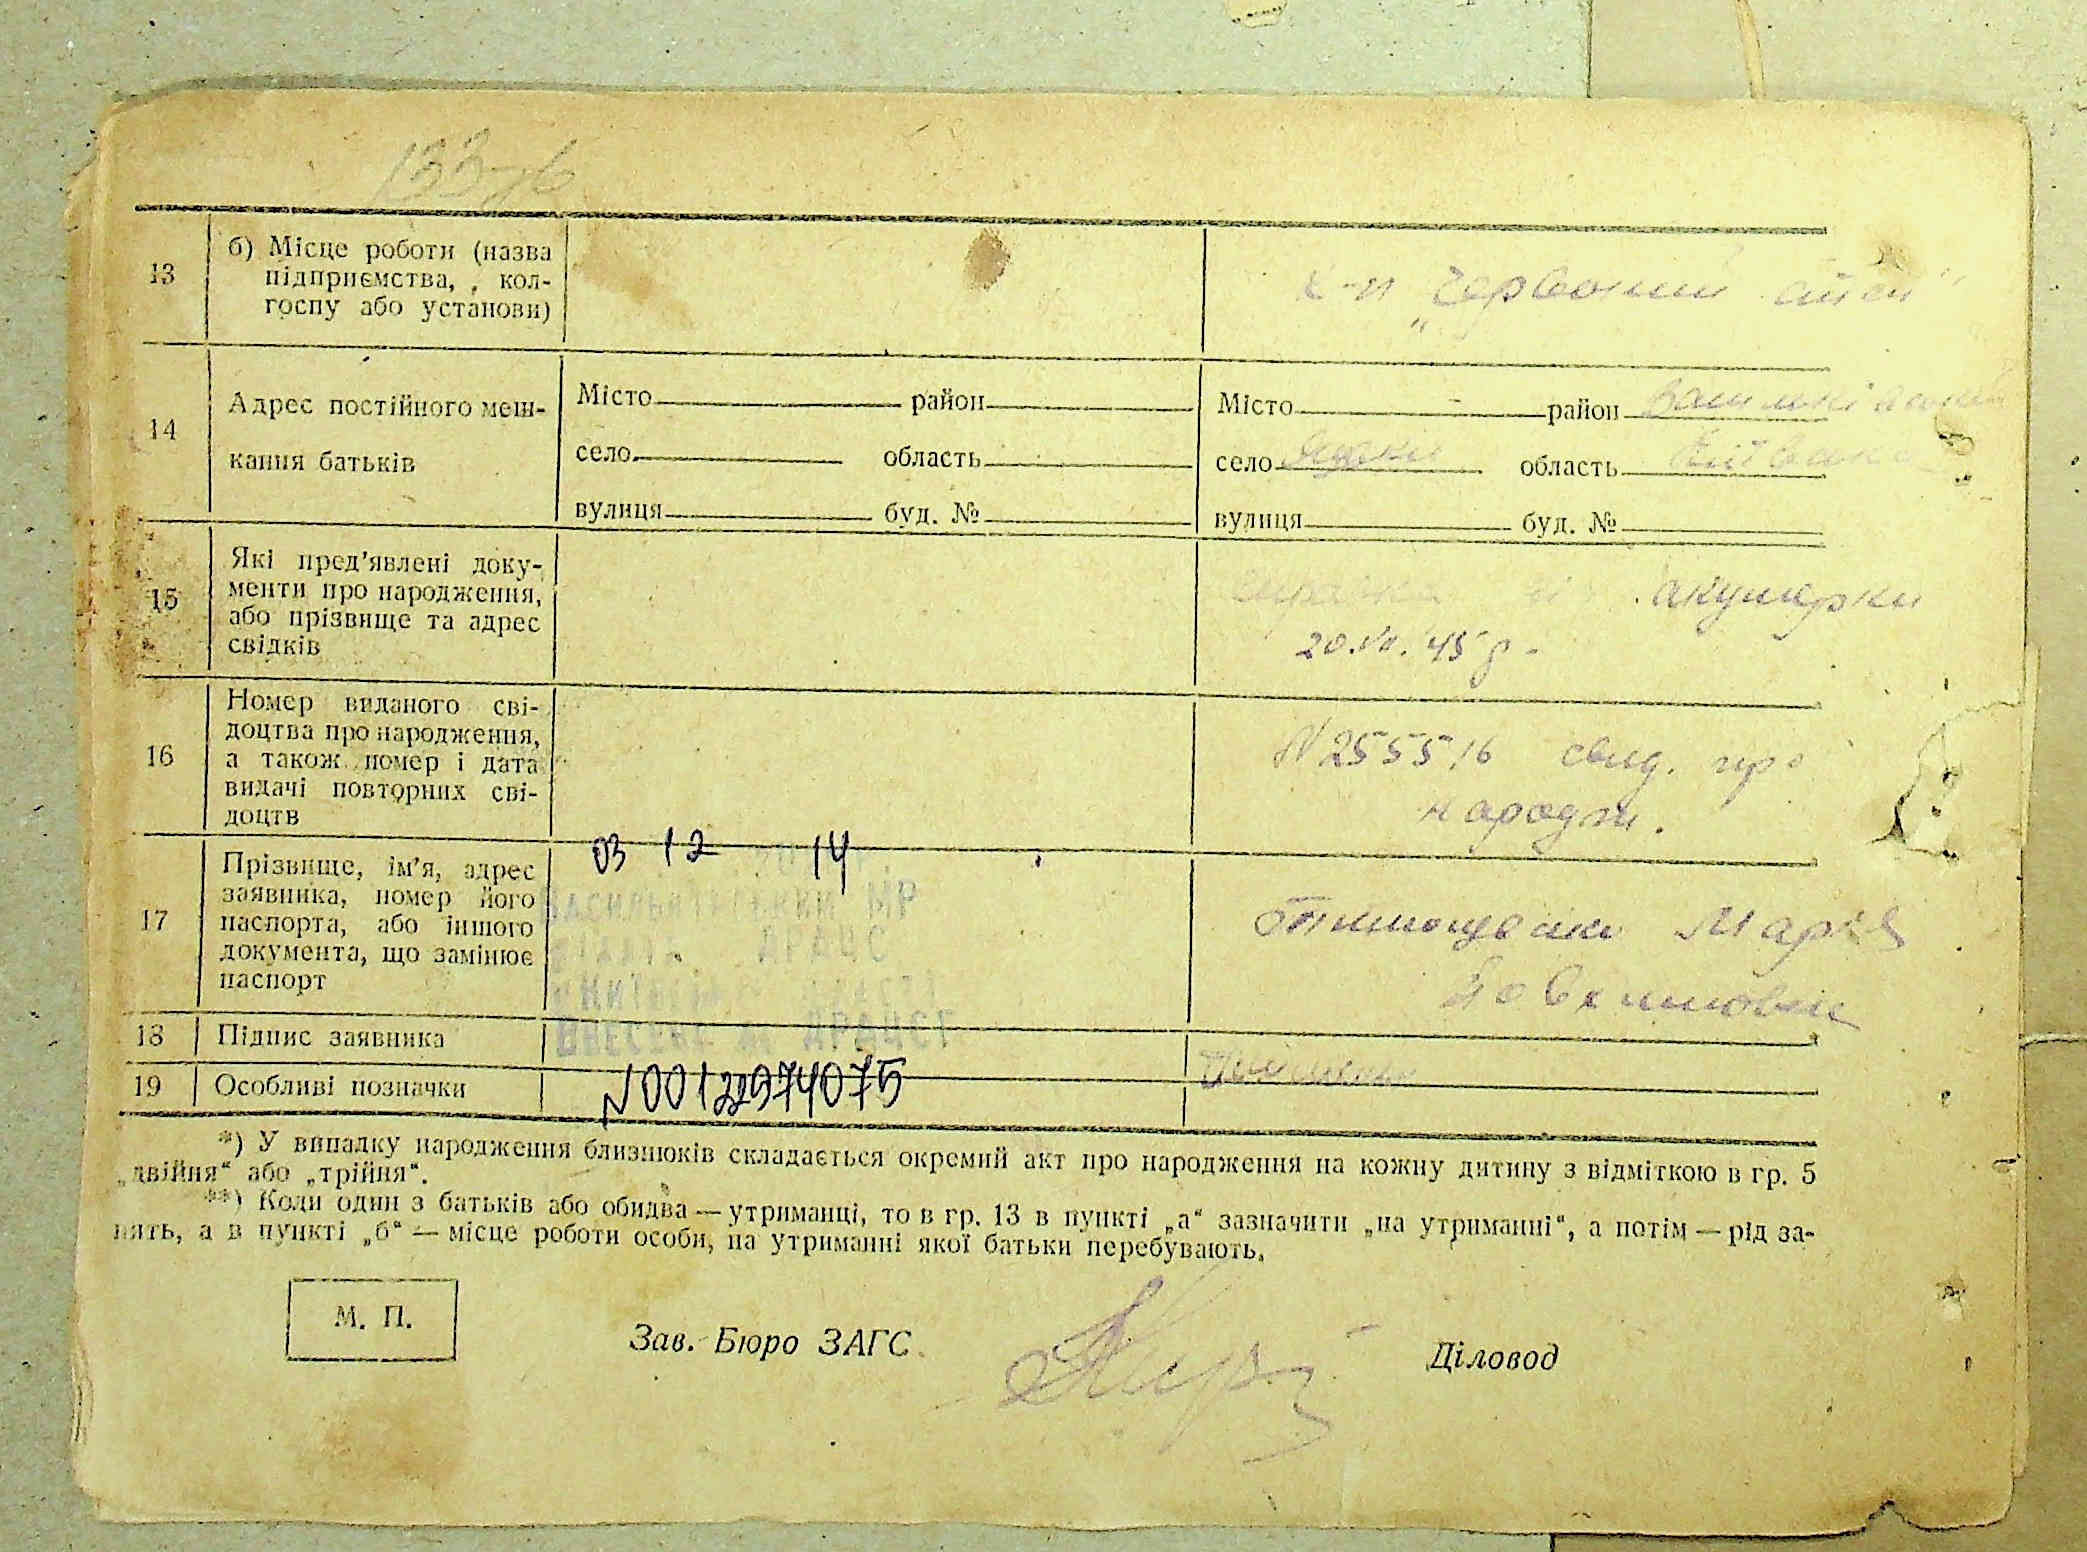 13
б) Місце роботи (назва
підприємства, кол-
госпу або установи)
к-п „Червоний
14
Адрес постійного меш-
кання батьків
Місто район
село область
вулиця буд. №
Місто район
село область
вулиця буд. №
15
Які пред’явлені доку-
менти про народження,
або прізвище та адрес
свідків
акушерки
20.VII.45 р.
16
Номер виданого сві-
доцтва про народження,
а також номер і дата
видачі повторних сві-
доцтв
N 255516 свид. про
народж.
17
Прізвище, ім’я, адрес
заявника, номер його
паспорта, або іншого
документа, що замінює
паспорт
03 12 14
МР
ДРАЦС
ВНЕСЕНЕ ДРАЦСГ
Тимощенко Марія
18
Підпис заявника
19
Особливі позначки
N00122974075
*) У випадку народження близнюків складається окремий акт про народження на кожну дитину з відміткою в гр. 5
„двійня“ або „трійня“.
**) Коли один з батьків або обидва — утриманці, то в гр. 13 в пункті „а“ зазначити „на утриманні“, а потім — рід за-
нять, а в пункті „б“ — місце роботи особи, на утриманні якої батьки перебувають.
М. П.
Зав. Бюро ЗАГС
Діловод